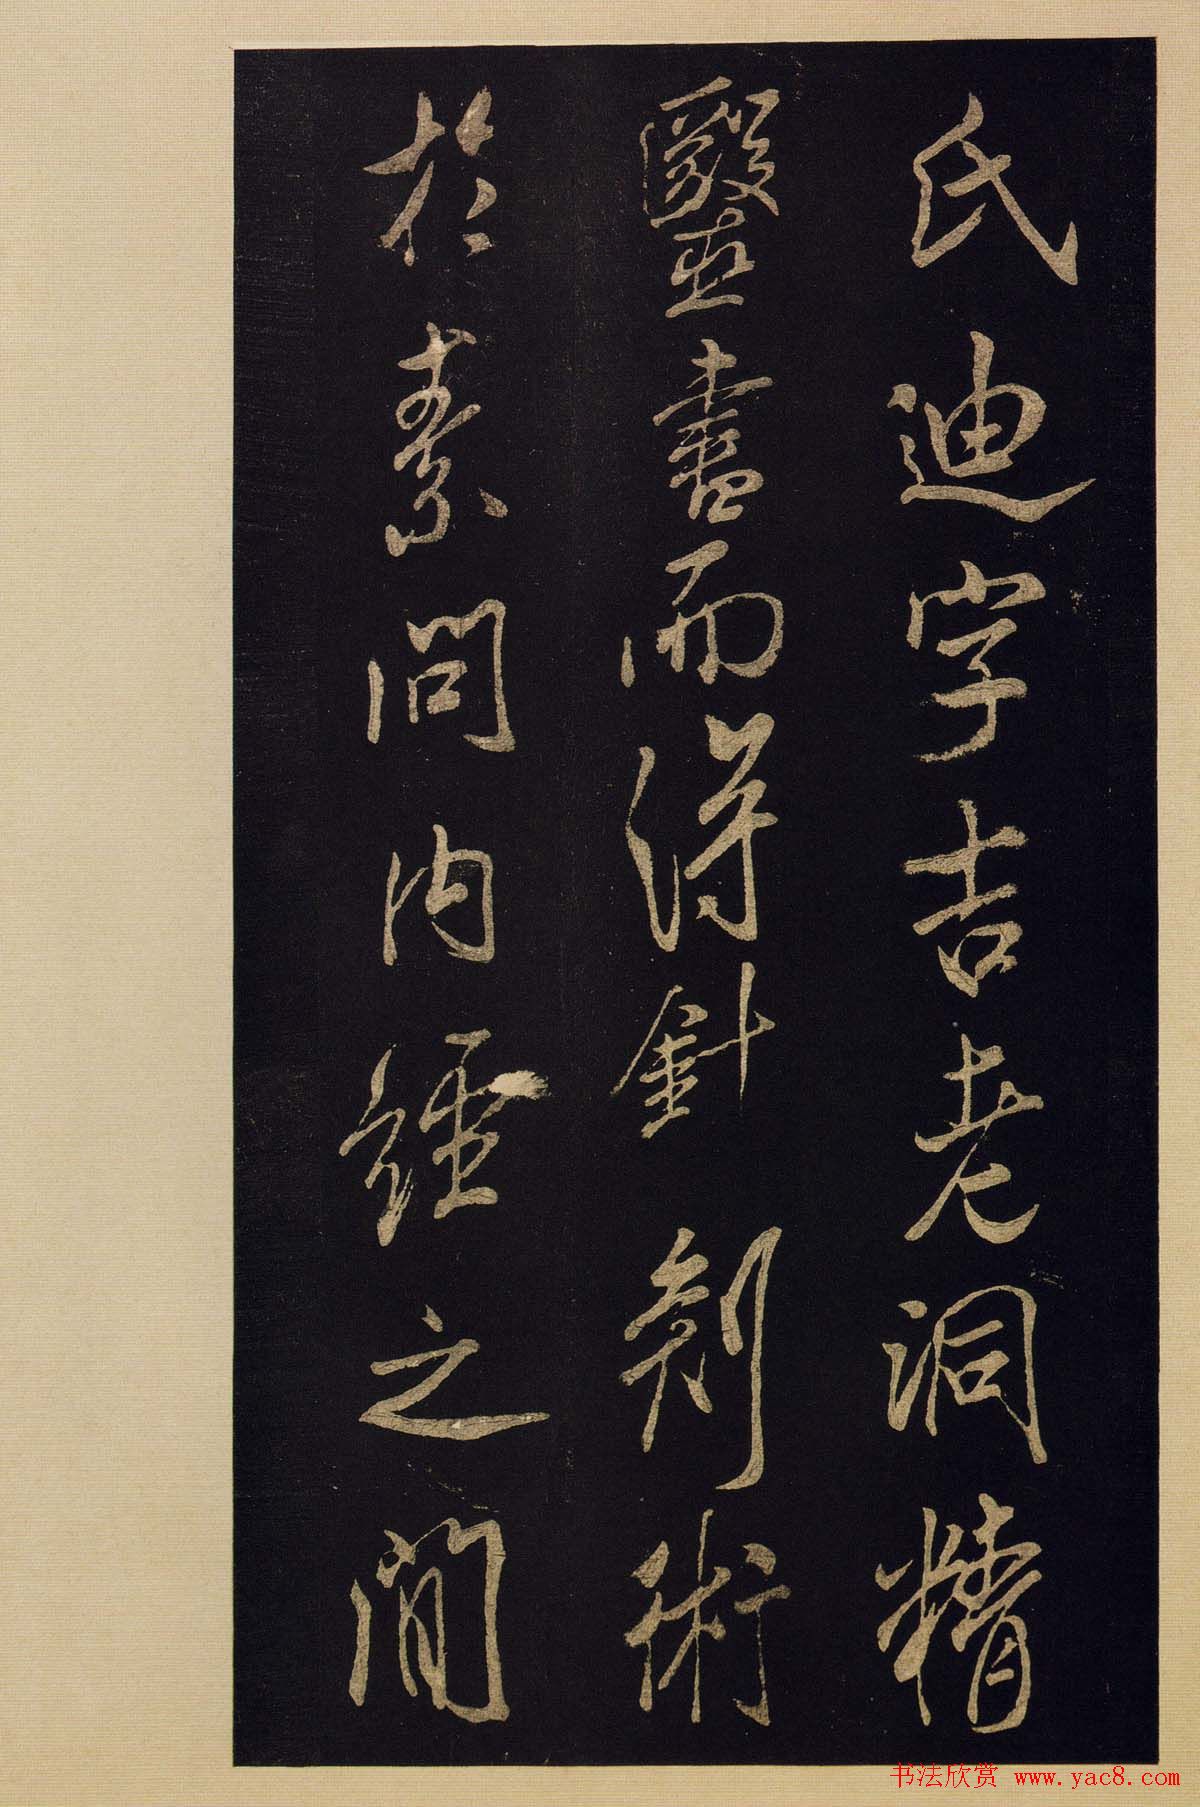 氏迪字吉老洞精
毉書而得針刺術
於素問內經之閒
书法欣赏 www.yac8.com